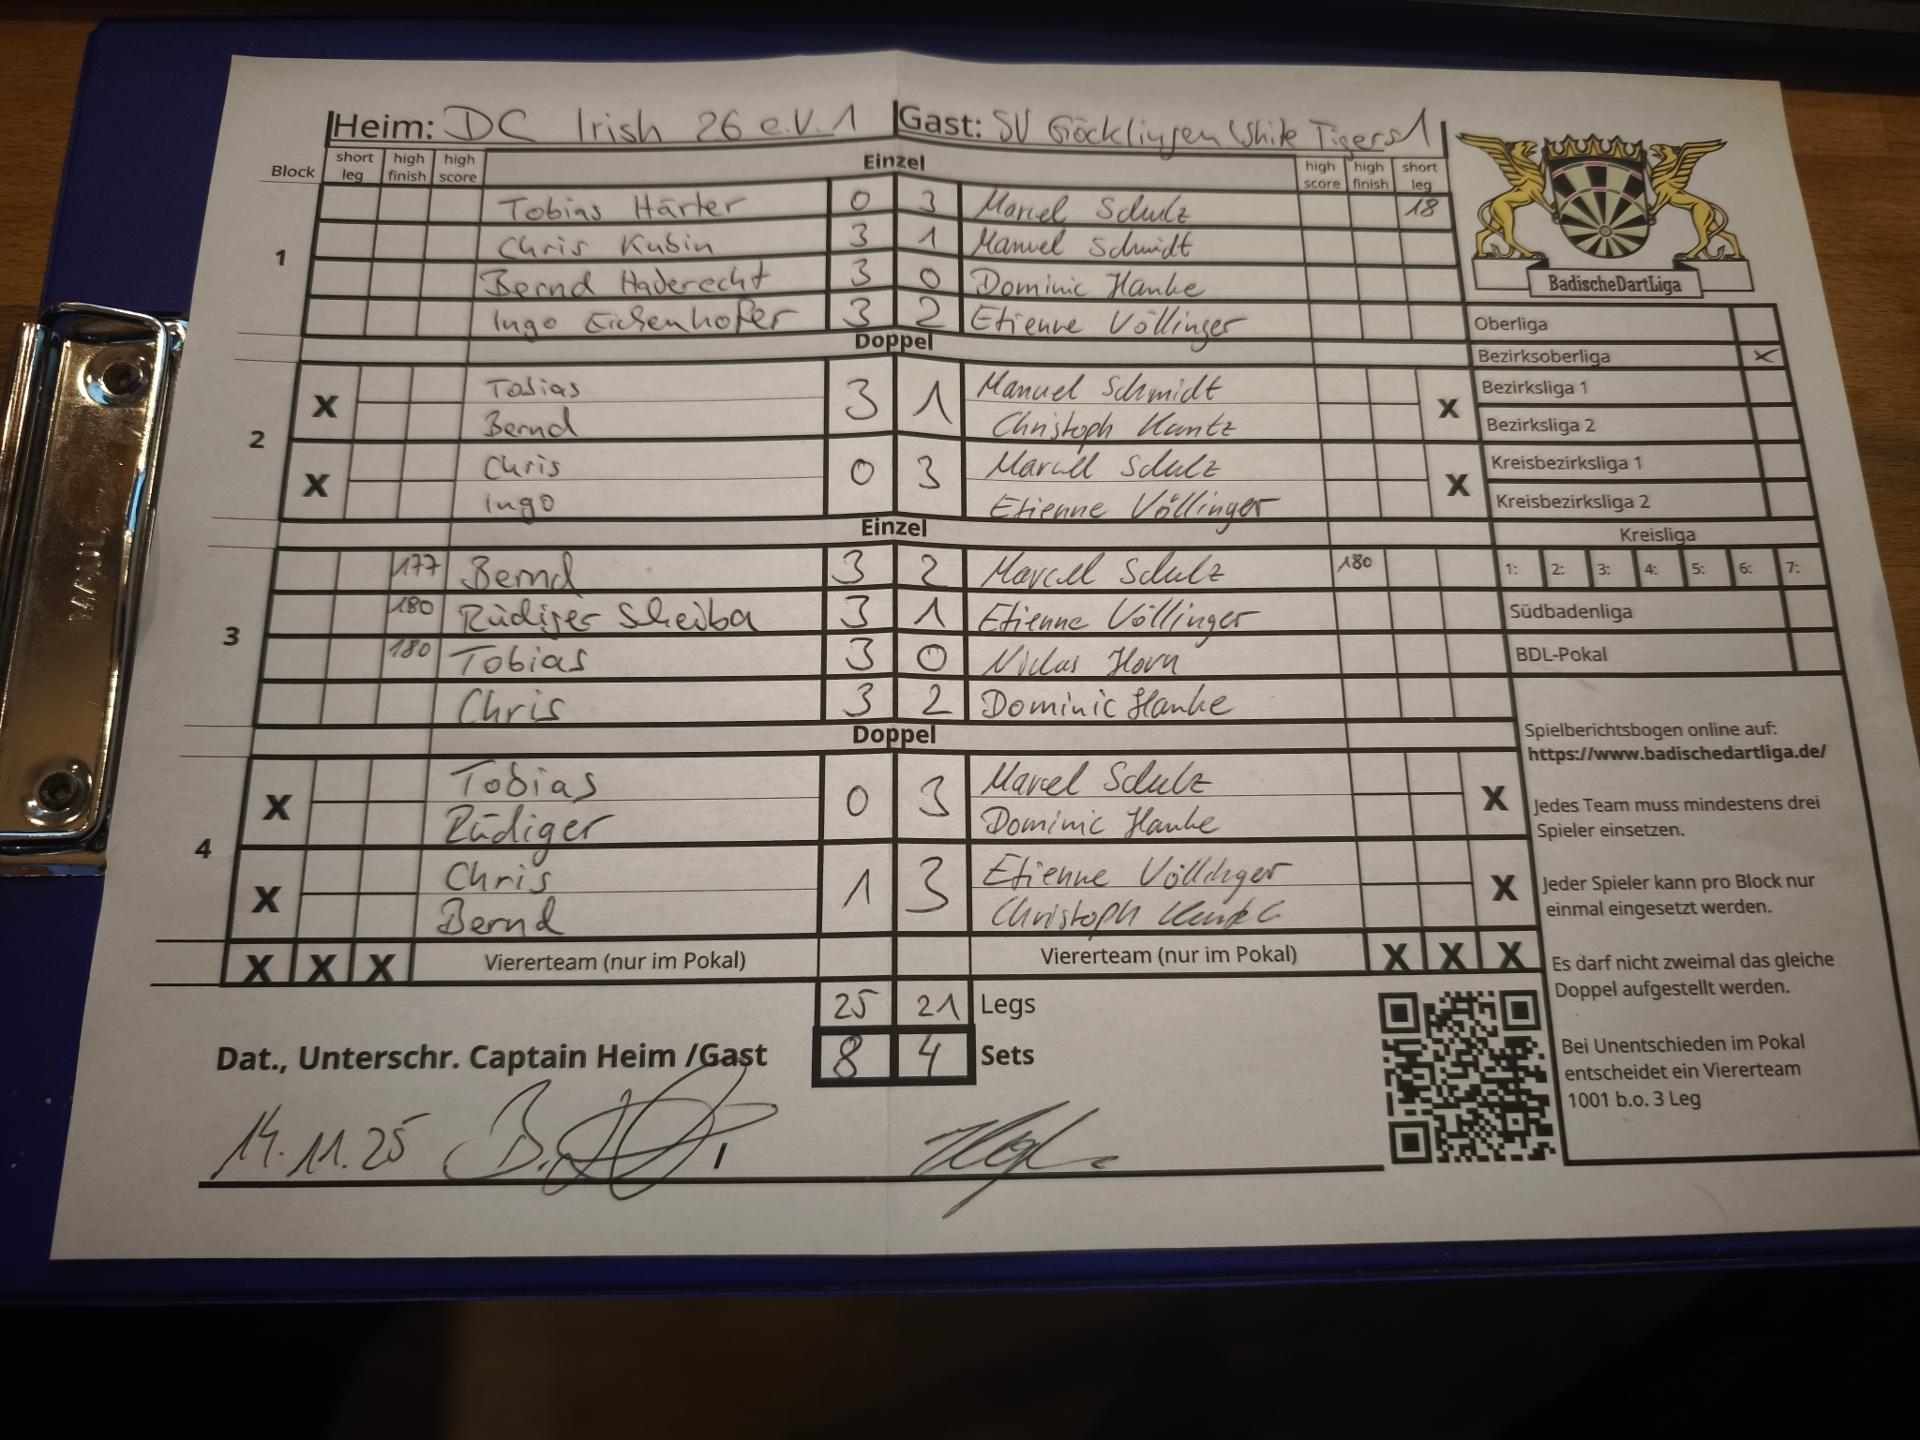 Heim: DC Irish 26 e.V. 1 Gast: SV Göcklingen White Tigers 1
Block short leg high finish high score Einzel high score high finish short leg
1
Tobias Härter 0 3 Marcel Schulz 18
Chris Kubin 3 1 Manuel Schmidt
Bernd Haderecht 3 0 Dominic Hanke
Ingo Eichenhofer 3 2 Etienne Völlinger
Doppel
2
X Tobias 3 1 Manuel Schmidt X
Bernd Christoph Kuntz
X Chris 0 3 Marcel Schulz X
Ingo Etienne Völlinger
Einzel
3
177 Bernd 3 2 Marcel Schulz 180
180 Rüdiger Scheiba 3 1 Etienne Völlinger
180 Tobias 3 0 Niclas Horn
Chris 3 2 Dominic Hanke
Doppel
4
X Tobias 0 3 Marcel Schulz X
Rüdiger Dominic Hanke
X Chris 1 3 Etienne Völlinger X
Bernd Christoph
X X X Viererteam (nur im Pokal) Viererteam (nur im Pokal) X X X
25 21 Legs
8 4 Sets
Dat., Unterschr. Captain Heim /Gast
14.11.25
BadischeDartLiga
Oberliga
Bezirksoberliga X
Bezirksliga 1
Bezirksliga 2
Kreisbezirksliga 1
Kreisbezirksliga 2
Kreisliga
1: 2: 3: 4: 5: 6: 7:
Südbadenliga
BDL-Pokal
Spielberichtsbogen online auf:
https://www.badischedartliga.de/
Jedes Team muss mindestens drei
Spieler einsetzen.
Jeder Spieler kann pro Block nur
einmal eingesetzt werden.
Es darf nicht zweimal das gleiche
Doppel aufgestellt werden.
Bei Unentschieden im Pokal
entscheidet ein Viererteam
1001 b.o. 3 Leg
MAUL